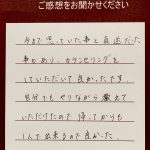 ご感想をお聞かせください
今まで思っていた事と真逆だった
事もあり、カウンセリングを
していただいて良かったです。
自分でもやりながら教えて
いただけたので帰ってからも
1人で出来るので良かった。